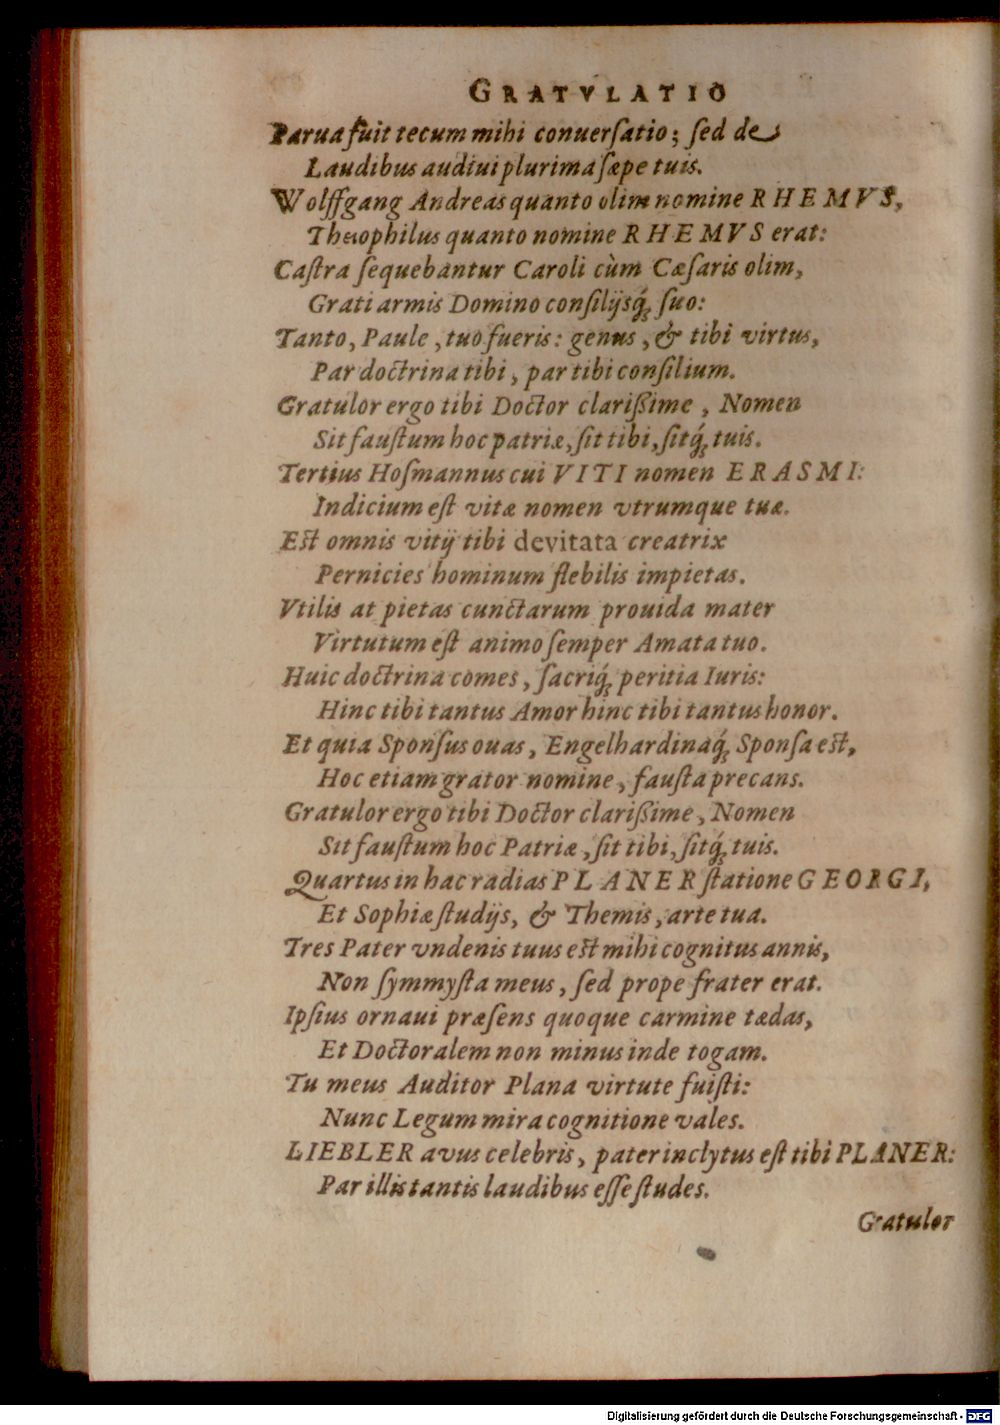 GRATVLATIO
Parua fuit tecum mihi conuerſatio; ſed de
Laudibus audiui plurima ſæpe tuis.
Wolffgang Andreas quanto olim nomine RHEMVS,
Theophilus quanto nomine RHEMVS erat:
Caſtra ſequebantur Caroli cùm Cæſaris olim,
Grati armis Domino conſilijsq́ꝫ ſuo:
Tanto, Paule, tuo fueris: genus, & tibi virtus,
Par doctrina tibi, par tibi conſilium.
Gratulor ergo tibi Doctor clarißime, Nomen
Sit fauſtum hoc patriæ, ſit tibi, ſitq́ꝫ tuis.
Tertius Hoſmannus cui VITI nomen ERASMI:
Indicium eſt vitæ nomen vtrumque tuæ.
Eſt omnis vitij tibi devitata creatrix
Pernicies hominum flebilis impietas.
Vtilis at pietas cunctarum prouida mater
Virtutum eſt animo ſemper Amata tuo.
Huic doctrina comes, ſacriq́ꝫ peritia Iuris:
Hinc tibi tantus Amor hinc tibi tantus honor.
Et quia Sponſus ouas, Engelhardinaq́ꝫ Sponſa eſt,
Hoc etiam grator nomine, fauſta precans.
Gratulor ergo tibi Doctor clarißime, Nomen
Sit fauſtum hoc Patriæ, ſit tibi, ſitq́ꝫ tuis.
Quartus in hac radias PLANER ſtatione GEORGI,
Et Sophiæ ſtudijs, & Themis, arte tua.
Tres Pater vndenis tuus eſt mihi cognitus annis,
Non ſymmyſta meus, ſed prope frater erat.
Ipſius ornaui præſens quoque carmine tædas,
Et Doctoralem non minus inde togam.
Tu meus Auditor Plana virtute fuiſti:
Nunc Legum mira cognitione vales.
LIEBLER avus celebris, pater inclytus eſt tibi PLANER:
Par illis tantis laudibus eſſe ſtudes.
Gratulor
Digitalisierung gefördert durch die Deutsche Forschungsgemeinschaft - DFG